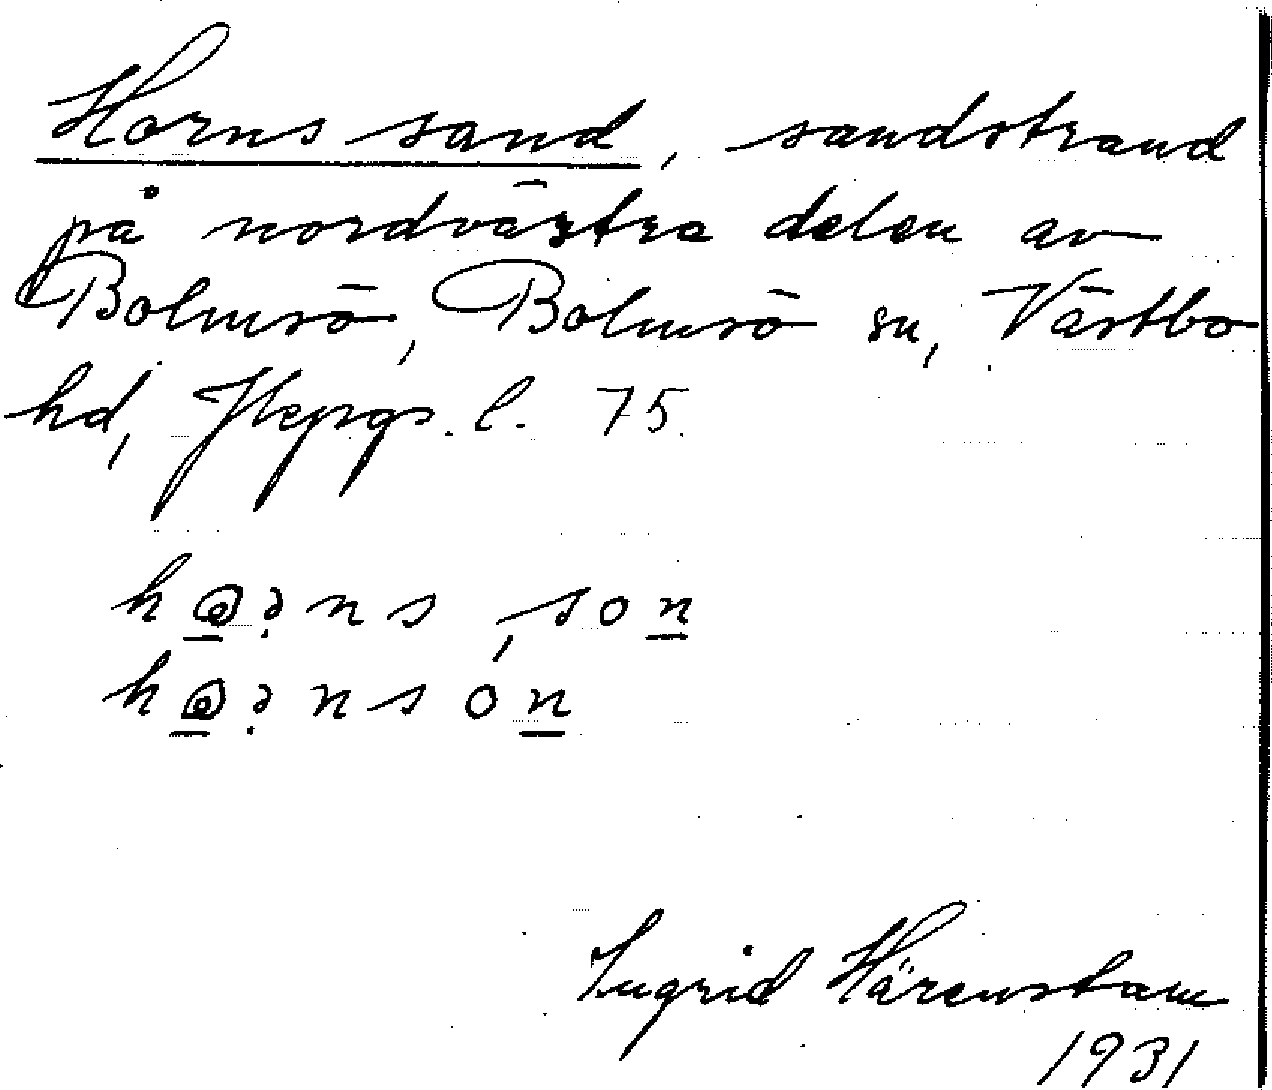 Horns sand, sandstrand
på nordvästra delen av
Bolmsö, Bolmsö sn, Västbo
hd, Hepgs. l. 75.
Ingrid Härenstam
1931